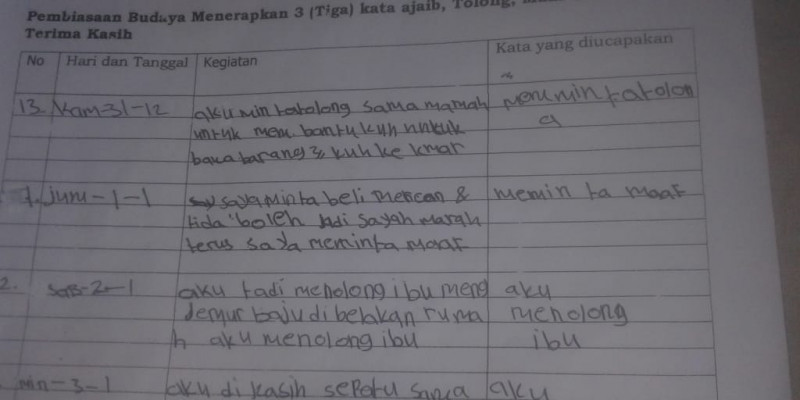 Pembiasaan Budaya Menerapkan 3 (Tiga) kata ajaib, Tolong,
Terima Kasih
No Hari dan Tanggal Kegiatan Kata yang diucapakan
13. kam-31-12 aku min tatolong sama mamah memmintatolon
untuk mem bantu kuh untuk g
bawa barang2 kuh ke kmar
1. jum-1-1 saya minta beli mercon & memin ta maaf
tida boleh jadi sayah marah
terus saya meminta maaf
2. sab-2-1 aku tadi menolong ibu meng aku
jemur baju di belakan ruma menolong
h aku menolong ibu ibu
min-3-1 aku di kasih sepatu sama aku